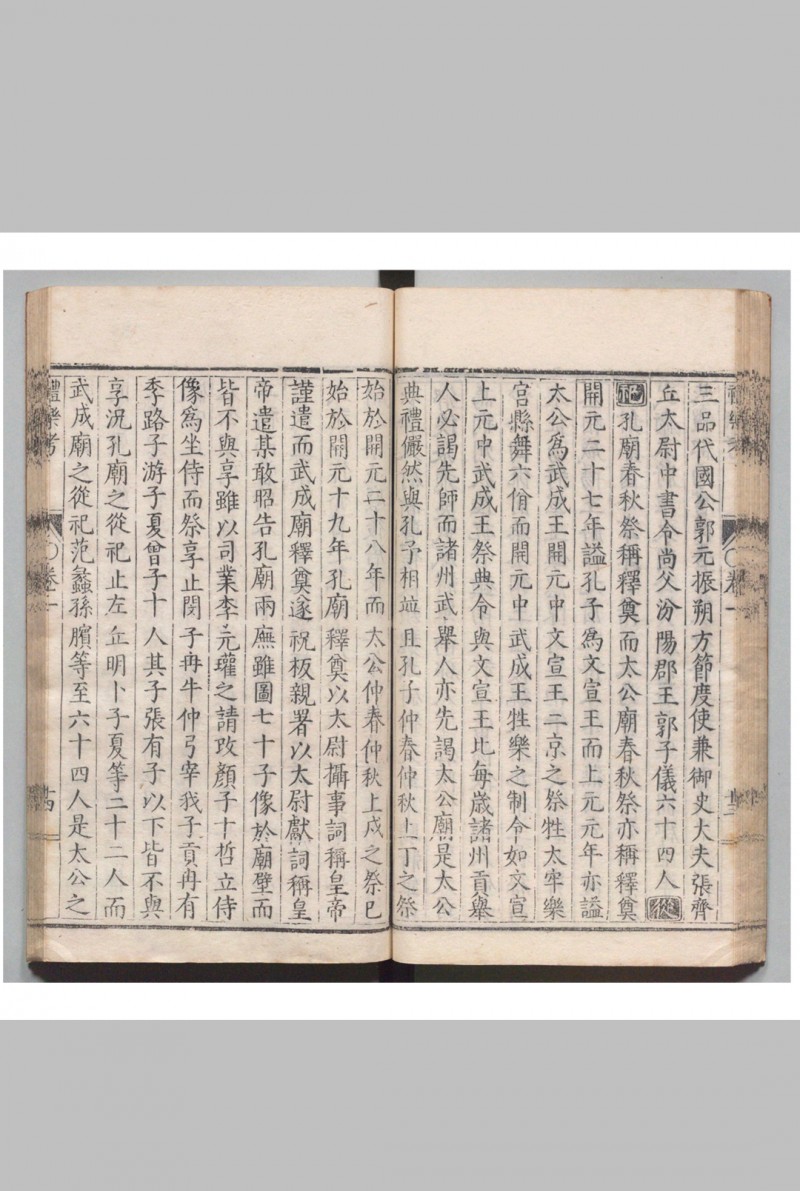 三品代國公郭元振朔方節度使兼御史大夫張齊
丘太尉中書令尚父汾陽郡王郭子儀六十四人從
祀孔廟春秋祭稱釋奠而太公廟春秋祭亦稱釋奠
開元二十七年諡孔子為文宣王而上元元年亦諡
太公為武成王開元中文宣王二京之祭牲太牢樂
宮縣舞六佾而開元中武成王牲樂之制令如文宣
上元中武成王祭典令與文宣王比每歲諸州貢舉
人必謁先師而諸州武舉人亦先謁太公廟是太公
典禮儼然與孔子相竝且孔子仲春仲秋上丁之祭
始於開元二十八年而太公仲春仲秋上戊之祭已
始於開元十九年孔廟釋奠以太尉攝事詞稱皇帝
謹遣而武成廟釋奠遂祝板親署以太尉獻詞稱皇
帝遣某敢昭告孔廟兩廡雖圖七十子像於廟壁而
皆不與享雖以司業李元瓘之請改顏子十哲立侍
像為坐侍而祭享止閔子冉牛仲弓宰我子貢冉有
季路子游子夏曾子十人其子張有子以下皆不與
享況孔廟之從祀止左丘明卜子夏等二十二人而
武成廟之從祀范蠡孫臏等至六十四人是太公之
禮樂考
卷一